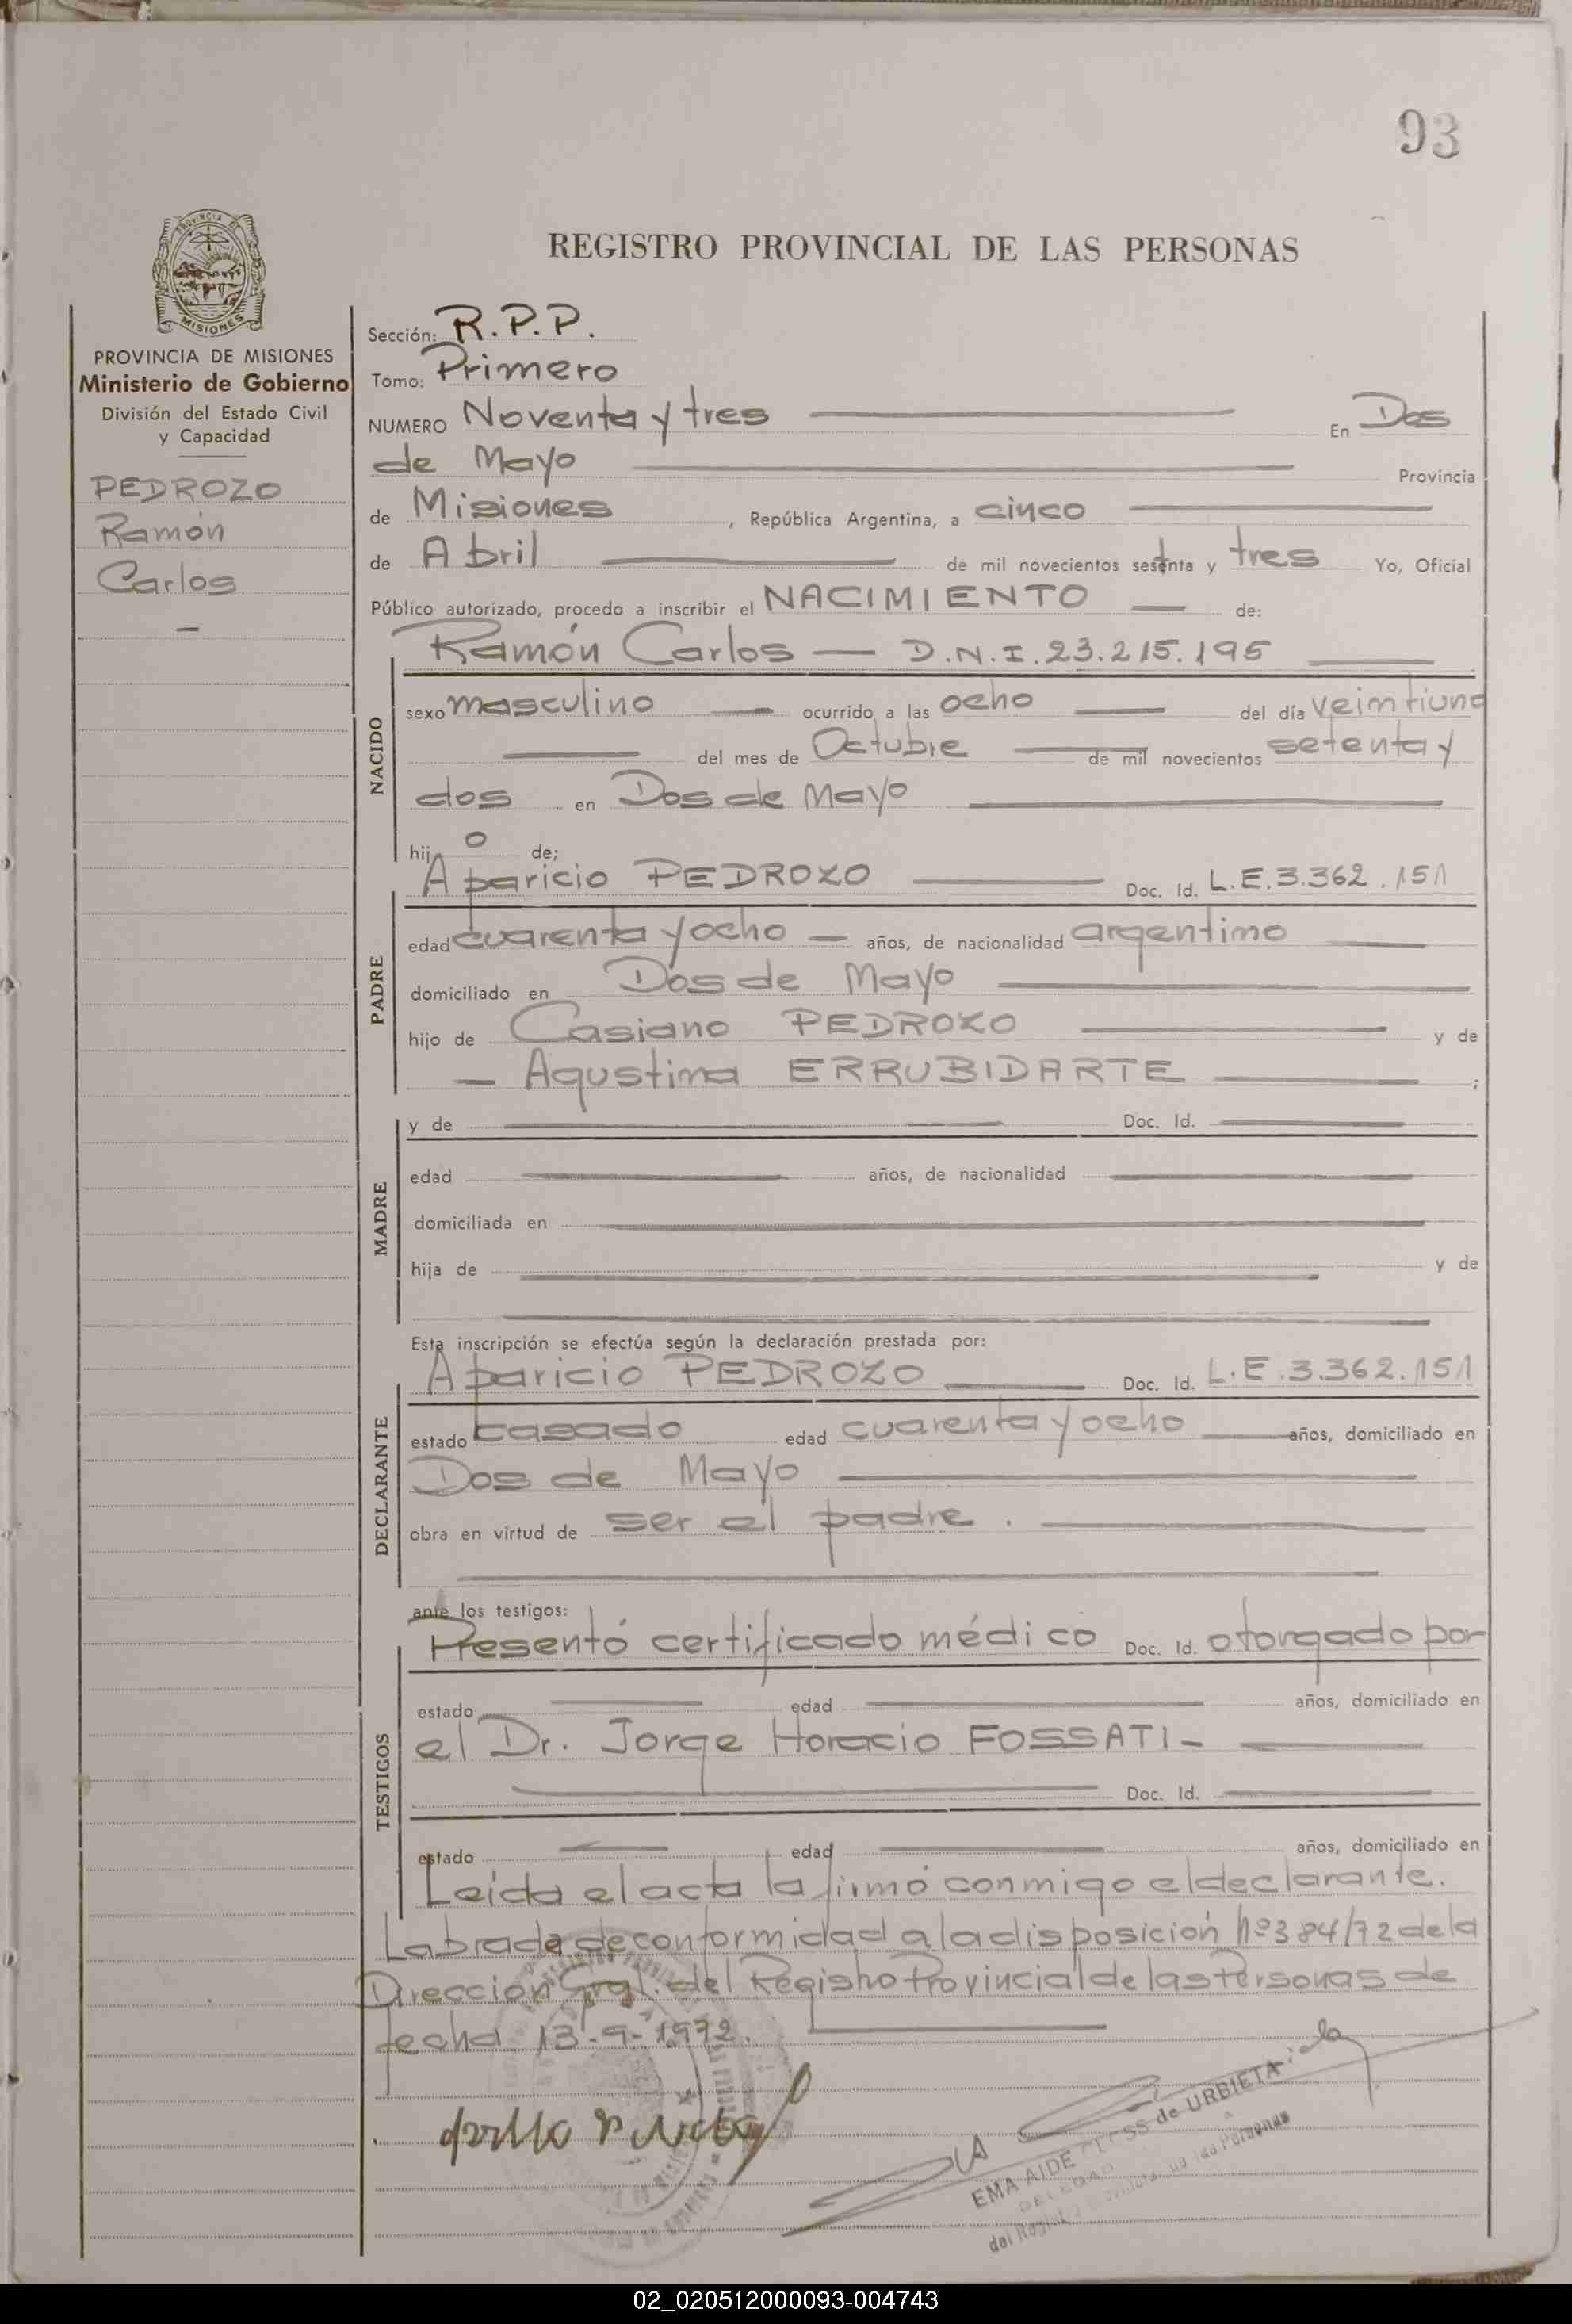 93
PROVINCIA DE MISIONES
REGISTRO PROVINCIAL DE LAS PERSONAS
PROVINCIA DE MISIONES
Ministerio de Gobierno
División del Estado Civil
y Capacidad
PEDROZO
Ramón
Carlos
Sección: R.P.P.
Tomo: Primero
NUMERO Noventa y tres En Dos
de Mayo Provincia
de Misiones, República Argentina, a cinco
de Abril de mil novecientos setenta y tres Yo, Oficial
Público autorizado, procedo a inscribir el NACIMIENTO de:
Ramón Carlos — D.N.I. 23.215.195
NACIDO
sexo masculino ocurrido a las ocho del día veintiuno
del mes de Octubre de mil novecientos setenta y
dos en Dos de Mayo
hijo de;
Aparicio PEDROZO Doc. Id. L.E. 3.362.151
PADRE
edad cuarenta y ocho — años, de nacionalidad argentino
domiciliado en Dos de Mayo
hijo de Casiano PEDROZO y de
— Agustina ERRUBIDARTE ;
MADRE
y de Doc. Id.
edad años, de nacionalidad
domiciliada en
hija de y de
Esta inscripción se efectúa según la declaración prestada por:
Aparicio PEDROZO Doc. Id. L.E. 3.362.151
DECLARANTE
estado casado edad cuarenta y ocho años, domiciliado en
Dos de Mayo
obra en virtud de ser el padre.
ante los testigos:
Presentó certificado médico Doc. Id. otorgado por
TESTIGOS
estado edad años, domiciliado en
el Dr. Jorge Horacio FOSSATI -
Doc. Id.
estado edad años, domiciliado en
Leída el acta la firmó conmigo el declarante.
Labrada de conformidad a la disposición Nº 384/72 de la
Dirección Gral. del Registro Provincial de las Personas de
fecha 13-9-1972.
EMA AIDE de URBIETA
02_020512000093-004743